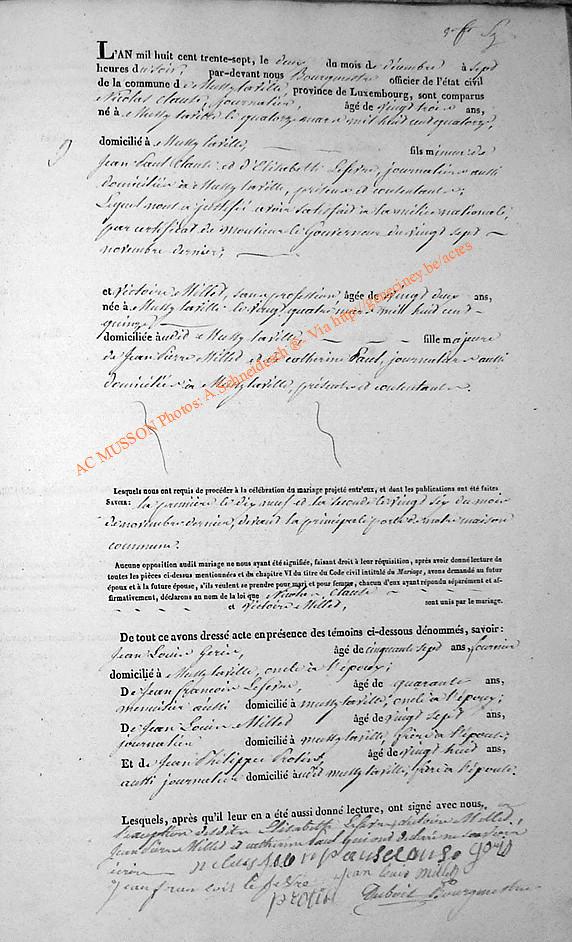 L'AN mil huit cent trente-sept, le deux du mois de décembre à sept
heures du soir, par-devant nous Bourgmestre officier de l'état civil
de la commune de Mussy laville, province de Luxembourg, sont comparus
Nicolas Claude, journalier, âgé de vingt trois ans,
né à Mussy laville le quatorze mars mil huit cent quatorze,
domicilié à Mussy laville, fils mineur de
Jean Paul Claude et d'Elisabeth Lefevre, journaliers aussi
domiciliés à Mussy laville, présens et contentants;
Lequel nous a justifié avoir satisfait à la milice nationale,
par certificat de Monsieur le Gouverneur du vingt sept
novembre dernier;
et Victoire Millet, sans profession âgée de vingt deux ans,
née à Mussy laville le vingt quatre mars mil huit cent
quinze
domiciliée audit Mussy laville fille majeure
de Jean Pierre Millet et de Catherine Paul, journaliers aussi
domiciliés à Mussy laville, présents et contentants.
AC MUSSON Photos: A.Schneidesch @. Via http://geneciney.be/actes
Lesquels nous ont requis de procéder à la célébration du mariage projeté entr'eux, et dont les publications ont été faites
SAVOIR: la première le dix neuf et la seconde le vingt six du mois
de novembre dernier, devant la principale porte de notre maison
commune.
Aucune opposition audit mariage ne nous ayant été signifiée, faisant droit à leur réquisition, après avoir donné lecture de
toutes les pièces ci-dessus mentionnées et du chapitre VI du titre du Code civil intitulé du Mariage, avons demandé au futur
époux et à la future épouse, s'ils veulent se prendre pour mari et pour femme, chacun d'eux ayant répondu séparément et af-
firmativement, déclarons au nom de la loi que Nicolas Claude
et Victoire Millet, sont unis par le mariage.
De tout ce avons dressé acte en présence des témoins ci-dessous dénommés, savoir:
Jean Louis âgé de cinquante sept ans,
domicilié à Mussy laville, oncle à l'époux;
De Jean françois Lefevre, âgé de quarante ans,
menuisier aussi domicilié à mussy laville, oncle à l'époux;
De Jean Louis Millet âgé de vingt sept ans,
journalier domicilié à mussy laville, frère à l'épouse;
Et de Jean Philippe âgé de vingt huit ans,
aussi journalier domicilié audit mussy laville, frère à l'épouse;
Lesquels, après qu'il leur en a été aussi donné lecture, ont signé avec nous,
l'exception desdits Elisabeth Lefevre, Victoire Millet,
Jean Pierre Millet et catherine Paul qui ont déclaré ne savoir
écrire
jean louis millet
Bourgmestre